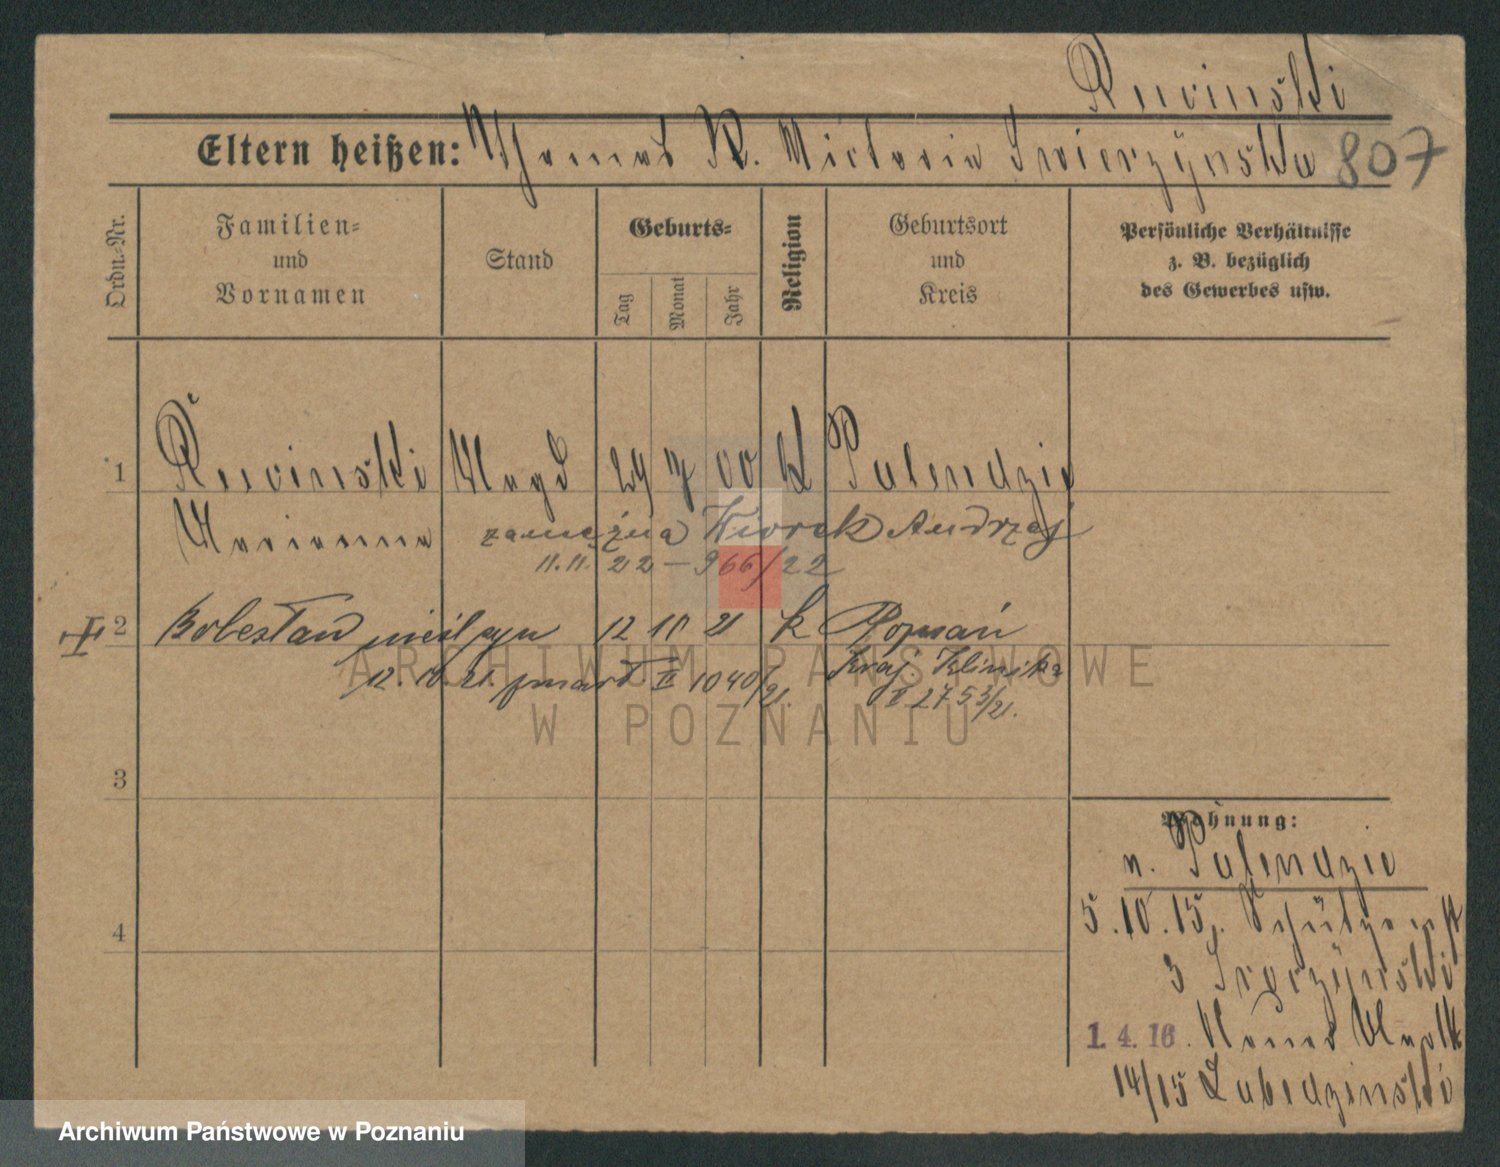 Ruvinski
Eltern heißen: Thomas R. Victoria Swierzynska 807
Ordn.-Nr.
Familien-
und
Vornamen
Stand
Geburts-
Tag
Monat
Jahr
Religion
Geburtsort
und
Kreis
Persönliche Verhältnisse
z. B. bezüglich
des Gewerbes usw.
1 Ruvinski Magd 29 7 00 k Palendzie
Marianna
zamężna Wiorek Andrzej
11.11. 22 – 966/22
2 Bolesław nieśl. syn 12 10 21 k Poznań
12. 10. 21. zmarł II 1040/21.
Kraj. Klinika
II 2753/21.
3
4
Wohnung:
n. Palendzie
5.10.15. Schützenst
3 Swierzynski
1. 4. 16.
14/15
ARCHIWUM PAŃSTWOWE
W POZNANIU
Archiwum Państwowe w Poznaniu